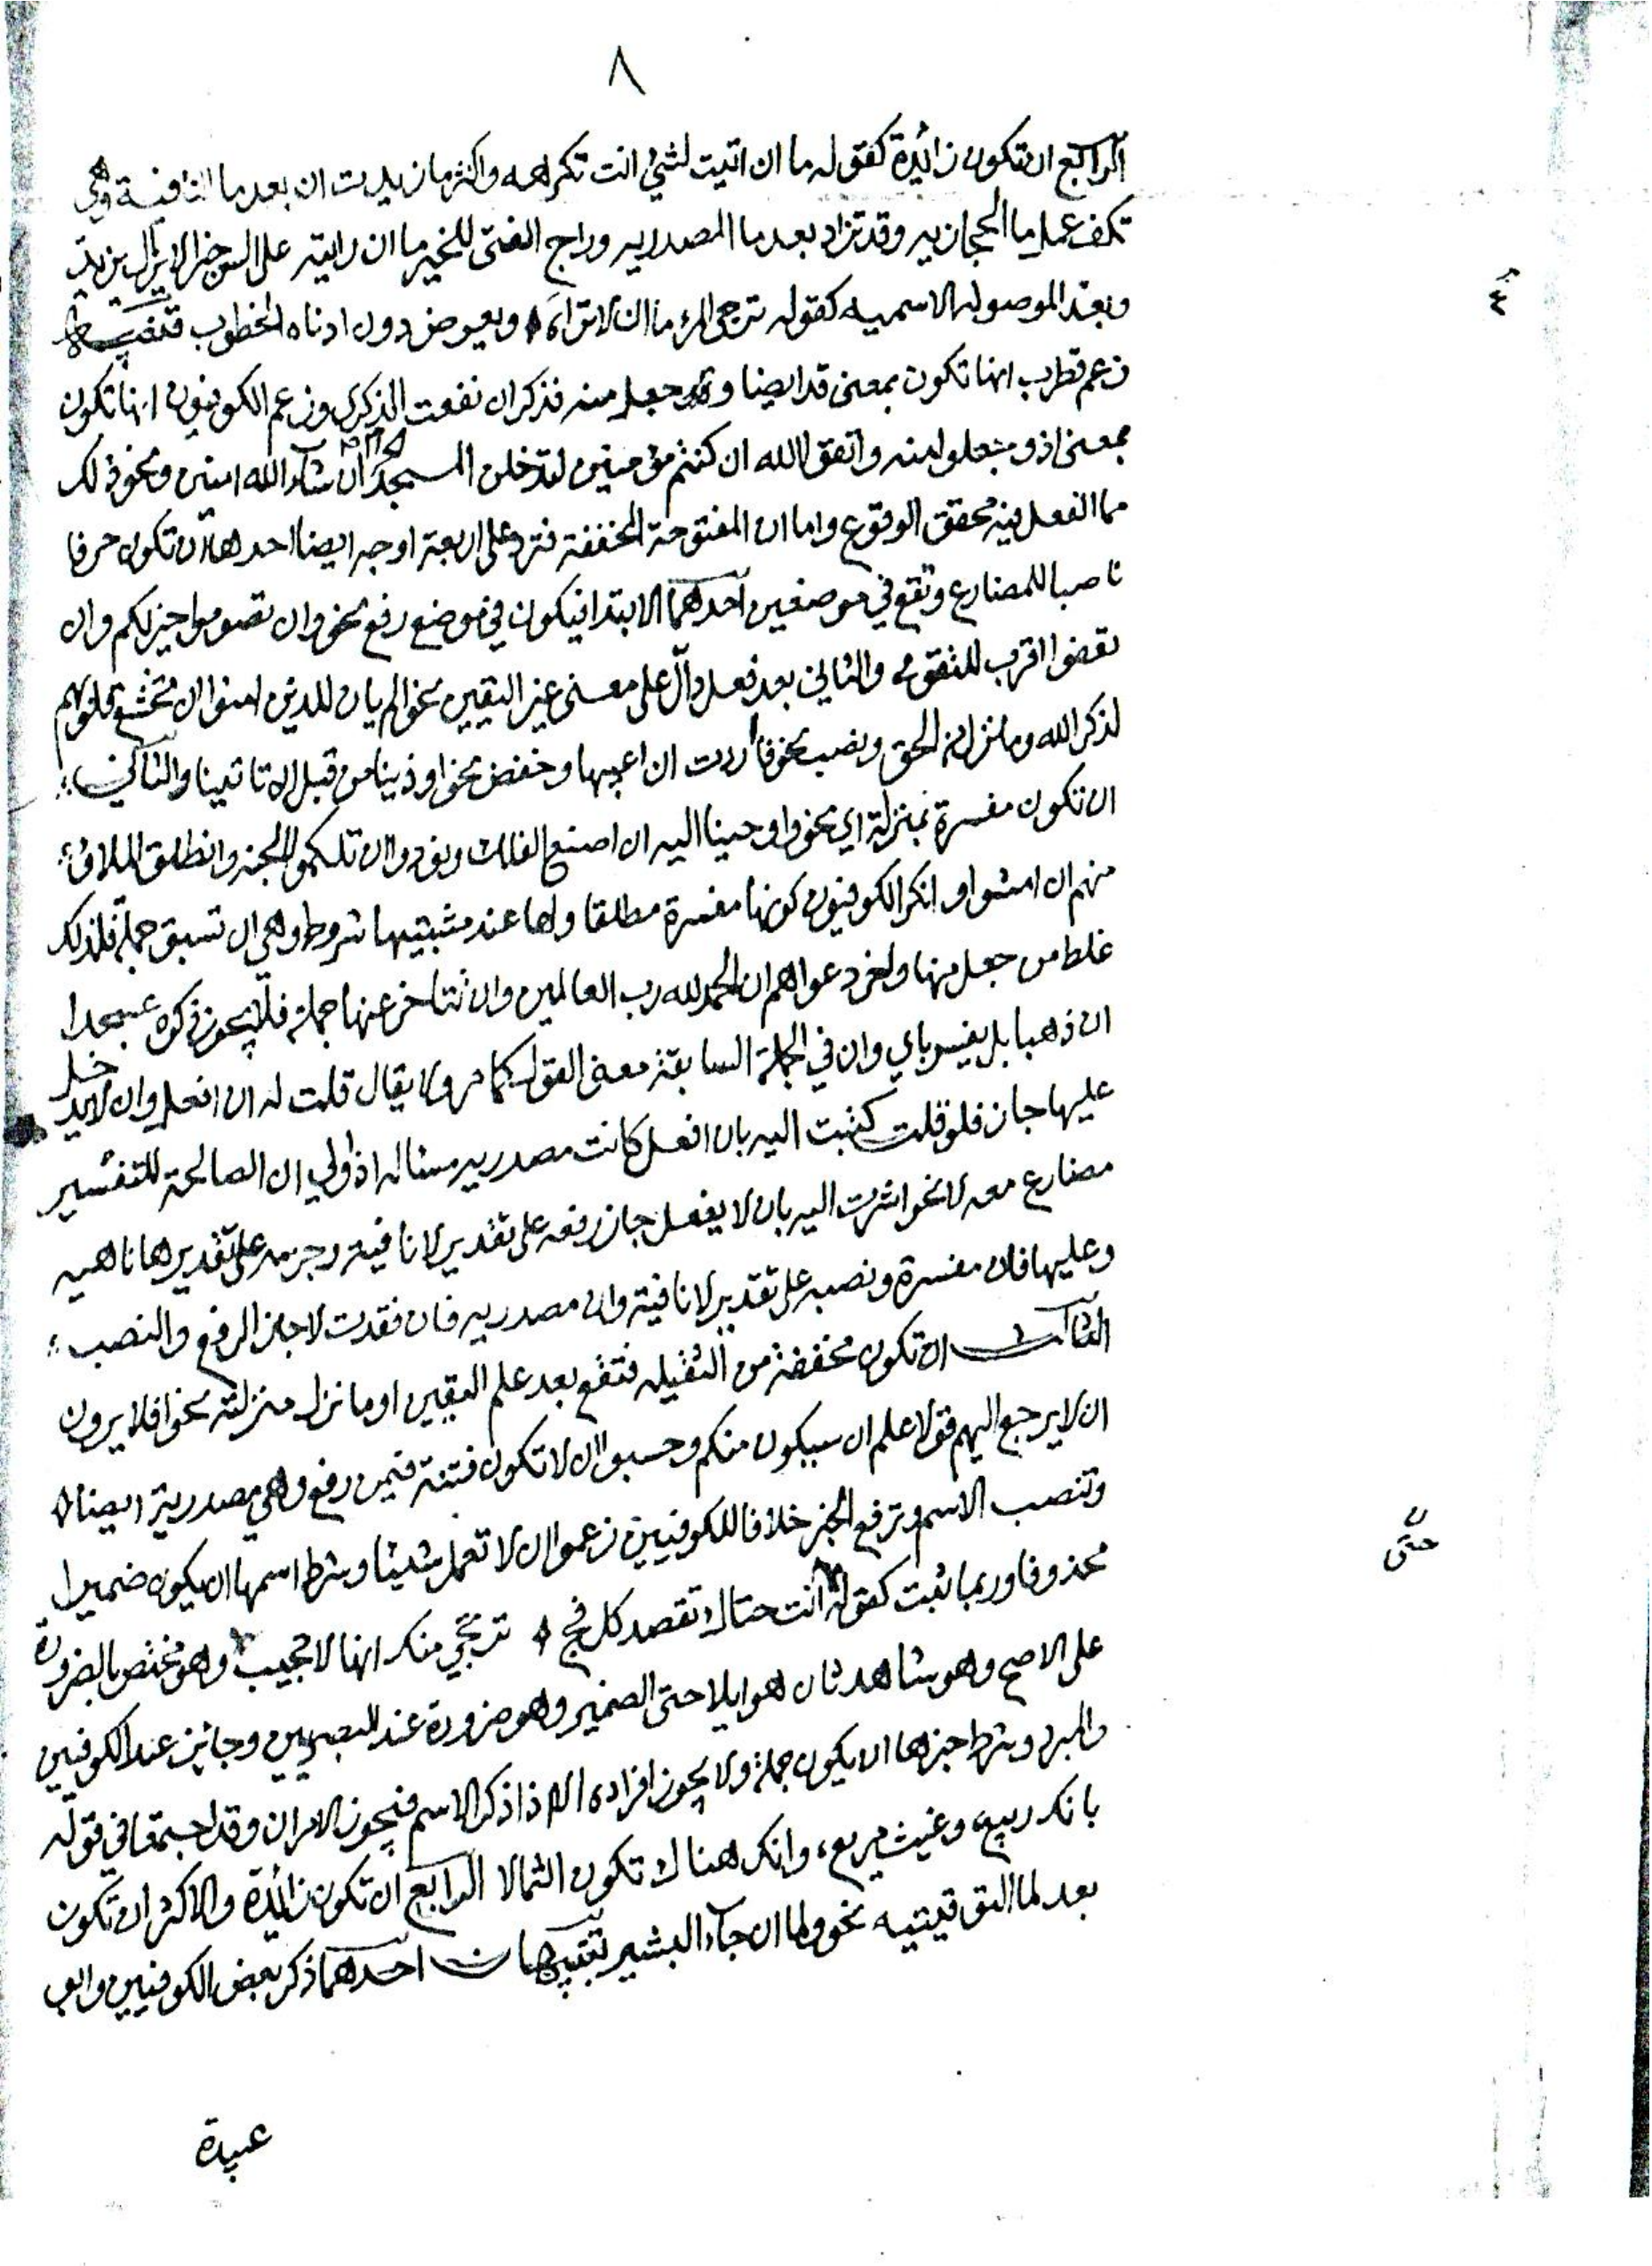 ٨
الرابع ان تكون زائدة كقوله ما ان اتيت لشئ انت تكرهه واكثر ما زيدت ان بعد ما النافية وهي
تكف عمل ما الحجازيه وقد تزاد بعد ما المصدريه وراج الفتى للخير ما ان رايته على السن خيرا لا يزال يزيد
وبعد الموصوله الاسميه كقوله ترجى المرء ما ان لا تراه وبعرض دون ادناه الخطوب
زعم قطرب انها تكون بمعنى قد ايضا وجعل منه فذكر ان نفعت الذكرى وزعم الكوفيون انها تكون
بمعنى اذ وجعلوا منه واتقوا الله ان كنتم مؤمنين لتدخلن المسجد الحرام ان شاء الله امنين ونحو ذلك
مما الفعل فيه محقق الوقوع واما ان المفتوحة المخففة فترد على اربعة اوجه ايضا احدها ان تكون حرفا
ناصبا للمضارع وتقع في موضعين احدهما الابتدا فيكون في موضع رفع نحو وان تصوموا خير لكم وان
تعفوا اقرب للتقوى والثاني بعد فعل دال على معنى غير اليقين نحو الم يان للذين امنوا ان تخشع قلوبهم
لذكر الله وما نزل من الحق ونصب نحو فاردت ان اعيبها وخفض نحو اوذينا من قبل ان تاتينا والثاني
ان تكون مفسرة بمنزلة اي نحو واوحينا اليه ان اصنع الفلك ونودوا ان تلكموا الجنه وانطلق الملاؤ
منهم ان امشوا وانكر الكوفيون كونها مفسرة مطلقا ولها عند مثبتيها شروط وهي ان تسبق جملة فلذلك
غلط من جعل منها واخر دعواهم ان الحمد لله رب العالمين وان تتاخر عنها جملة فلا يجوز ذكره عسجدا
ان ذهبا بل يفسر باي وان في الجملة السابقة معنى القول كما مر ولا يقال قلت له ان افعل وان لا يدخل
عليها جار فلو قلت كتبت اليه بان افعل كانت مصدريه مساله اذا ولي ان الصالحة للتفسير
مضارع معه لا نحو اشرت اليه بان لا يفعل جاز رفعه على تقدير لا نافية وجزمه على تقديرها ناهيه
وعليها فان مفسرة ونصبه على تقدير لا نافية وان مصدريه فان فقدت لا جاز الرفع والنصب
الثالث ان تكون مخففة من الثقيله فتقع بعد علم اليقين او ما نزل منزلته نحو افلا يرون
ان لا يرجع اليهم قولا علم ان سيكون منكم وحسبوا ان لا تكون فتنة فيمن رفع وهي مصدرية ايضا
وتنصب الاسم وترفع الخبر خلافا للكوفيين زعموا ان لا تعمل شيئا وشرط اسمها ان يكون ضميرا
محذوفا وربما ثبت كقوله انت حتاك تقصد كل فج ترجي منك انها لا تخيب وهو مختص بالضرورة
على الاصح وهو شاهد ثان هو ايلا حتى الضمير وهو ضرورة عند البصريين وجائز عند الكوفيين
والمبرد وشرط خبرها ان يكون جملة ولا يجوز افراده الا اذا ذكر الاسم فيجوز الامران وقد اجتمعا في قوله
بانك ربيع وغيث مريع وانك هناك تكون الثمالا الرابع ان تكون زائدة والاكثر ان تكون
بعد لما التوقيتيه نحو ولما ان جاء البشير تنبيهان احدهما ذكر بعض الكوفيين وابو
عبيدة
حتى